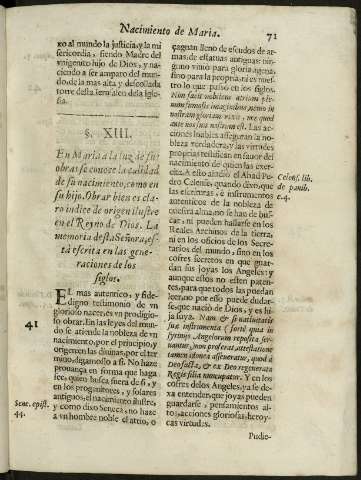 Nacimiento de Maria.
71
xo al mundo la justicia, y la mi
sericordia, siendo Madre del
vnigenito hijo de Dios, y na-
ciendo a ser amparo del mun-
do, de la mas alta y descollada
torre desta semelion dela Igle-
sia.
§. XIII.
En Maria a la luz de sus
obras se conoce la calidad
de su nacimiento, como en
su hijo. Obrar bien es cla-
ro indice de origen ilustre
en el Reyno de Dios. La
memoria desta Señora, es-
tà escrita en las gene-
raciones de los
siglos.
41
EL mas autentico, y fide-
digno testimonio de vn
glorioso nacer, es vn prodigio-
so obrar. En las leyes del mun-
do se atiende la nobleza de vn
nacimiento, por el principio, y
origen en las diuinas, por el ter
mino, digamoslo a si. No haze
prouança en forma que haga
fee, quien busca fuera de si, y
en los progenitores, y solares
antiguos, el nacimiento ilustre,
Senec. epist.
44.
y como dixo Seneca, no haze
a vn hombre noble el atrio, o
çaguan lleno de escudos de ar-
mas, de estatuas antiguas: nin-
guno viuiò para gloria agena,
sino para la propria, ni es nues-
tro lo que passò en los siglos.
Non facit nobilem atrium ple-
num fumosis imaginibus, nemo in
nostram gloriam vixit, nec quod
ante nos fuit nostrum est. Las ac-
ciones loables asseguran la no-
bleza verdadera, y las virtudes
proprias testifican en fauor del
nacimiento de quien las exer-
cita. A esto atendio el Abad Pe-
dro Celense, quando dixo, que
Celens. lib.
de panib.
c. 4.
las escrituras, è instrumentos
autenticos de la nobleza de
nuestra alma no se han de bus-
car, ni pueden hallarse en los
Reales Archiuos de la tierra,
ni en los oficios de los Secre-
tarios del mundo, sino en los
cofres secretos en que guar-
dan sus joyas los Angeles: y
aunque estos no esten paten-
tes, para que todos las puedan
leer, no por esso puede dudar-
se, que nacio de Dios, y es hi-
ja suya. Nam & si natiuitatis
sua instrumenta (fortè qua in
scrinijs Angelorum reposita ser-
uantur, non proferat, attestatione
tamen idonea asseueratur, quod à
Deo facta, & ex Deo regenerata
Regis filia nuncupatur. Y en los
cofres delos Angeles, ya se de-
xa entender, que joyas pueden
guardarse, pensamientos al-
tos, acciones gloriosas, heroy-
cas virtudes.
Pudie-